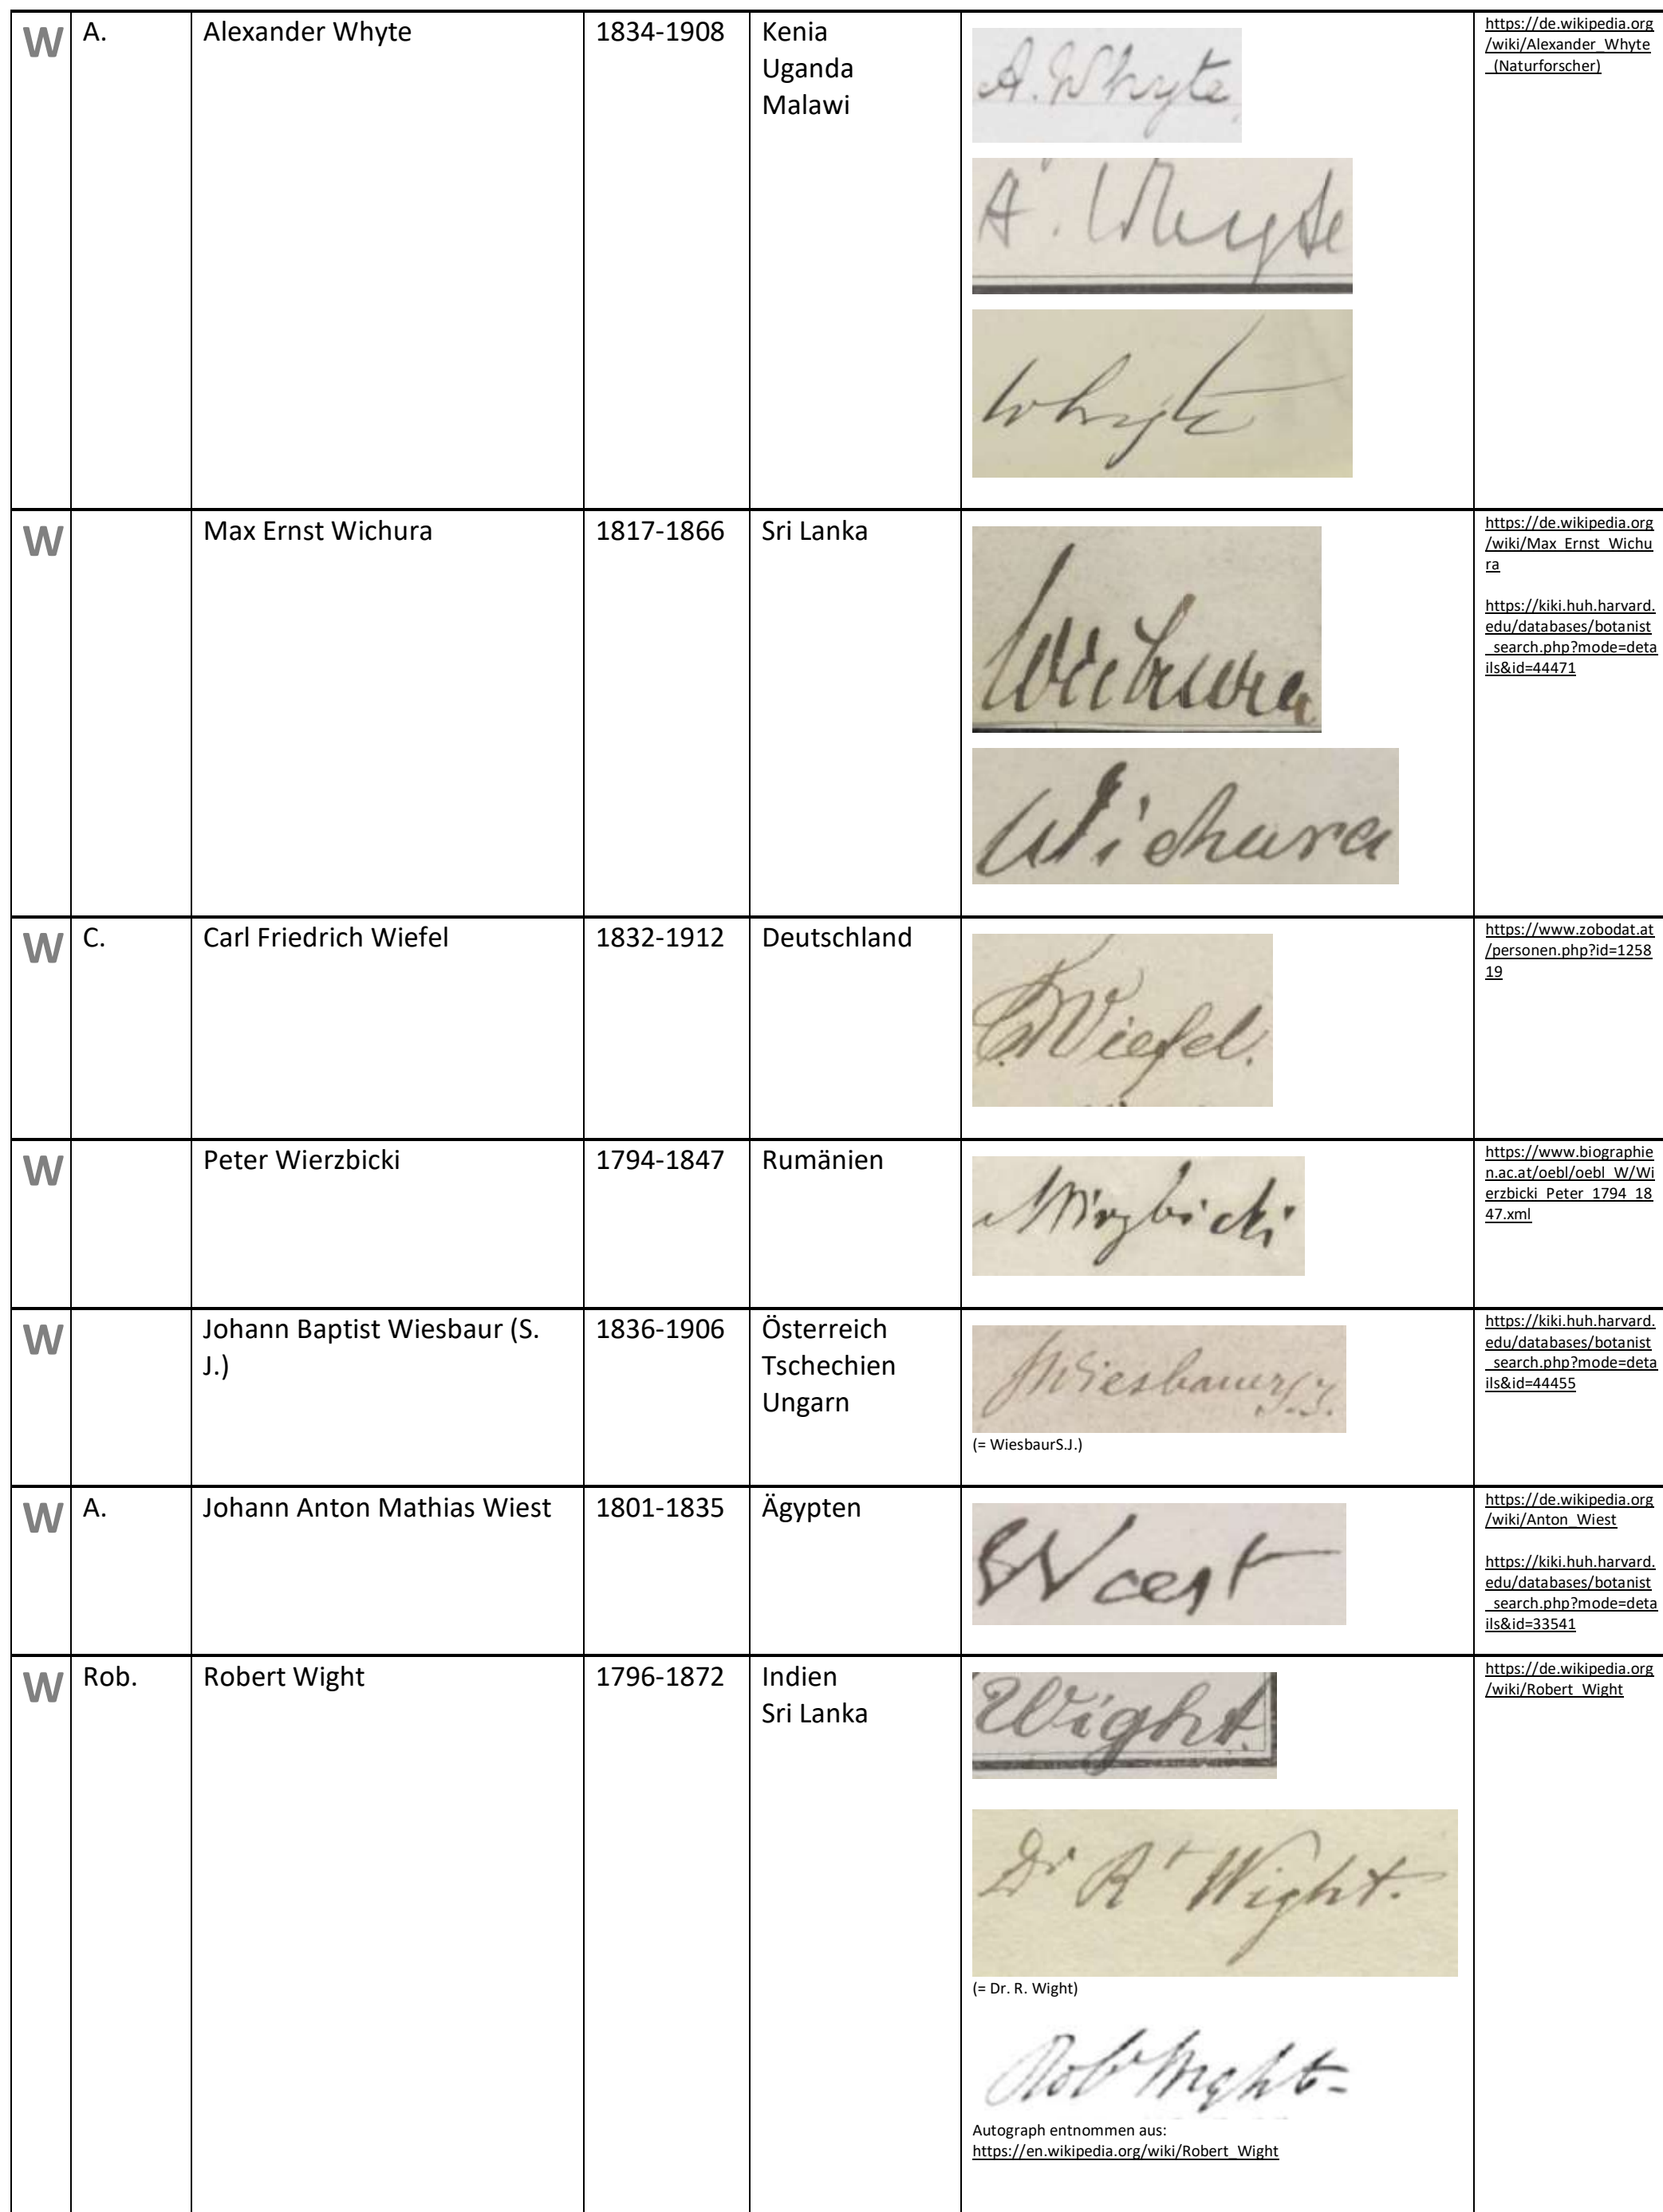 W
A.
Alexander Whyte
1834-1908
Kenia
Uganda
Malawi
A. Whyte
A. Whyte
Whyte
https://de.wikipedia.org
/wiki/Alexander_Whyte
_(Naturforscher)
W
Max Ernst Wichura
1817-1866
Sri Lanka
Wichura
Wichura
https://de.wikipedia.org
/wiki/Max_Ernst_Wichu
ra
https://kiki.huh.harvard.
edu/databases/botanist
_search.php?mode=deta
ils&id=44471
W
C.
Carl Friedrich Wiefel
1832-1912
Deutschland
C. Wiefel.
https://www.zobodat.at
/personen.php?id=1258
19
W
Peter Wierzbicki
1794-1847
Rumänien
Wirzbicki
https://www.biographie
n.ac.at/oebl/oebl_W/Wi
erzbicki_Peter_1794_18
47.xml
W
Johann Baptist Wiesbaur (S.
J.)
1836-1906
Österreich
Tschechien
Ungarn
Wiesbauer S.J.
(= WiesbaurS.J.)
https://kiki.huh.harvard.
edu/databases/botanist
_search.php?mode=deta
ils&id=44455
W
A.
Johann Anton Mathias Wiest
1801-1835
Ägypten
https://de.wikipedia.org
/wiki/Anton_Wiest
https://kiki.huh.harvard.
edu/databases/botanist
_search.php?mode=deta
ils&id=33541
W
Rob.
Robert Wight
1796-1872
Indien
Sri Lanka
Wight.
Dr Rt Wight.
(= Dr. R. Wight)
Robt Wight
Autograph entnommen aus:
https://en.wikipedia.org/wiki/Robert_Wight
https://de.wikipedia.org
/wiki/Robert_Wight